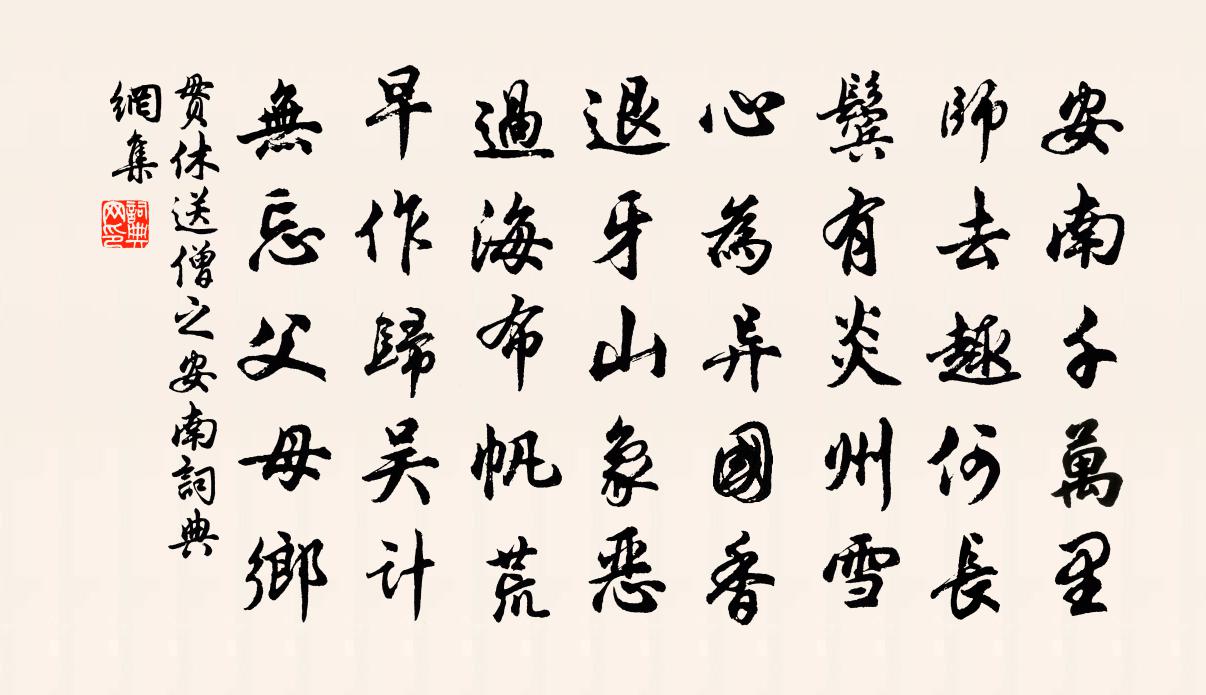 安南千萬里
師去趣何長
鬢有炎州雪
心為异國香
退牙山象惡
過海布帆荒
早作歸吴计
無忘父母鄉
貫休送僧之安南詞典
網集
詞典
网印